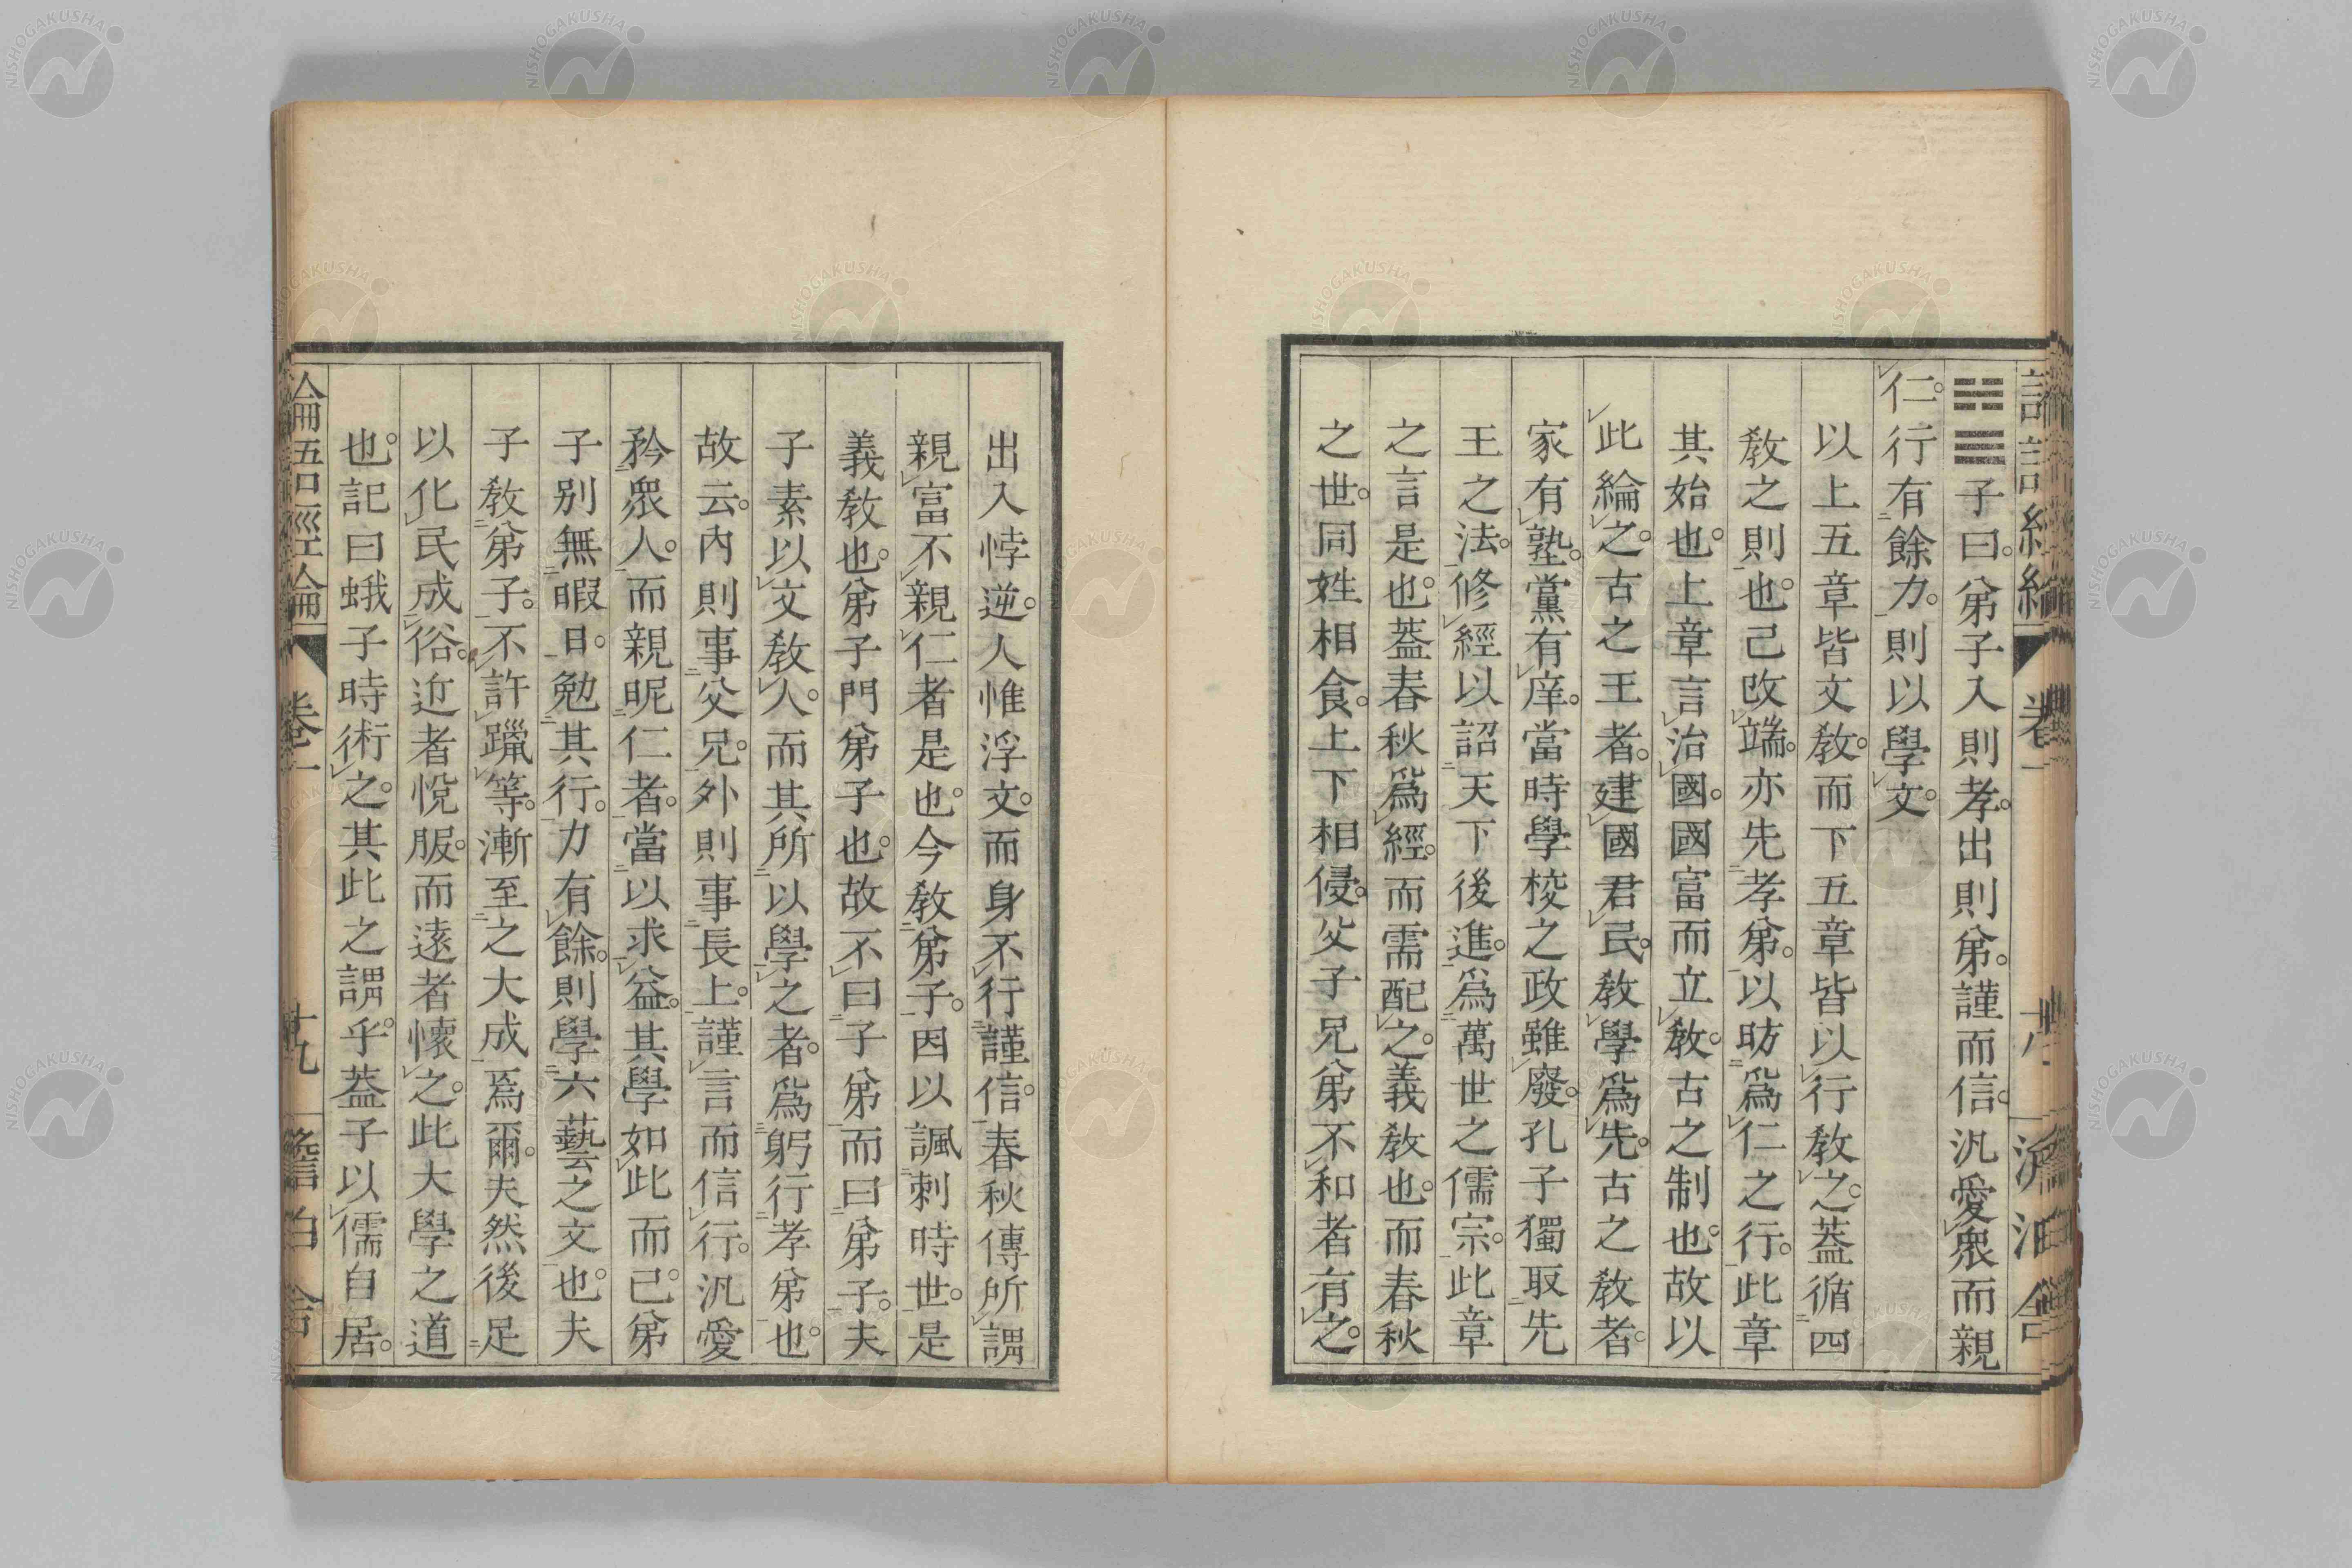 子曰。弟子入則孝。出則弟。謹而信。汎愛衆而親
仁。行有餘力。則以學文。
以上五章皆文敎。而下五章皆以行敎之。蓋循四
敎之則也。己改端。亦先孝弟。以昉爲仁之行。此章
其始也。上章言治國。國富而立敎。古之制也。故以
此綸之。古之王者。建國君民。敎學爲先。古之敎者。
家有塾。黨有庠。當時學校之政雖廢。孔子獨取先
王之法。修經以詔天下後進。爲萬世之儒宗。此章
之言是也。蓋春秋爲經。而需配之。義敎也。而春秋
之世。同姓相食。上下相侵。父子兄弟不和者有之。
出入悖逆。人惟浮文。而身不行謹信。春秋傳所謂
親富不親仁者是也。今敎弟子。因以諷刺時世。是
義敎也。弟子門弟子也。故不曰子弟而曰弟子。夫
子素以文敎人。而其所以學之者。爲躬行孝弟也。
故云。內則事父兄。外則事長上。謹言而信行。汎愛
矜衆人。而親昵仁者。當以求益。其學如此而已。弟
子別無暇日。勉其行。力有餘。則學六藝之文也。夫
子敎弟子。不許躐等。漸至之大成焉爾。夫然後足
以化民成俗。近者悅服。而遠者懷之。此大學之道
也。記曰蛾子時術之。其此之謂乎。蓋子以儒自居。
論語經綸 卷一 十九
NISHOGAKUSHA